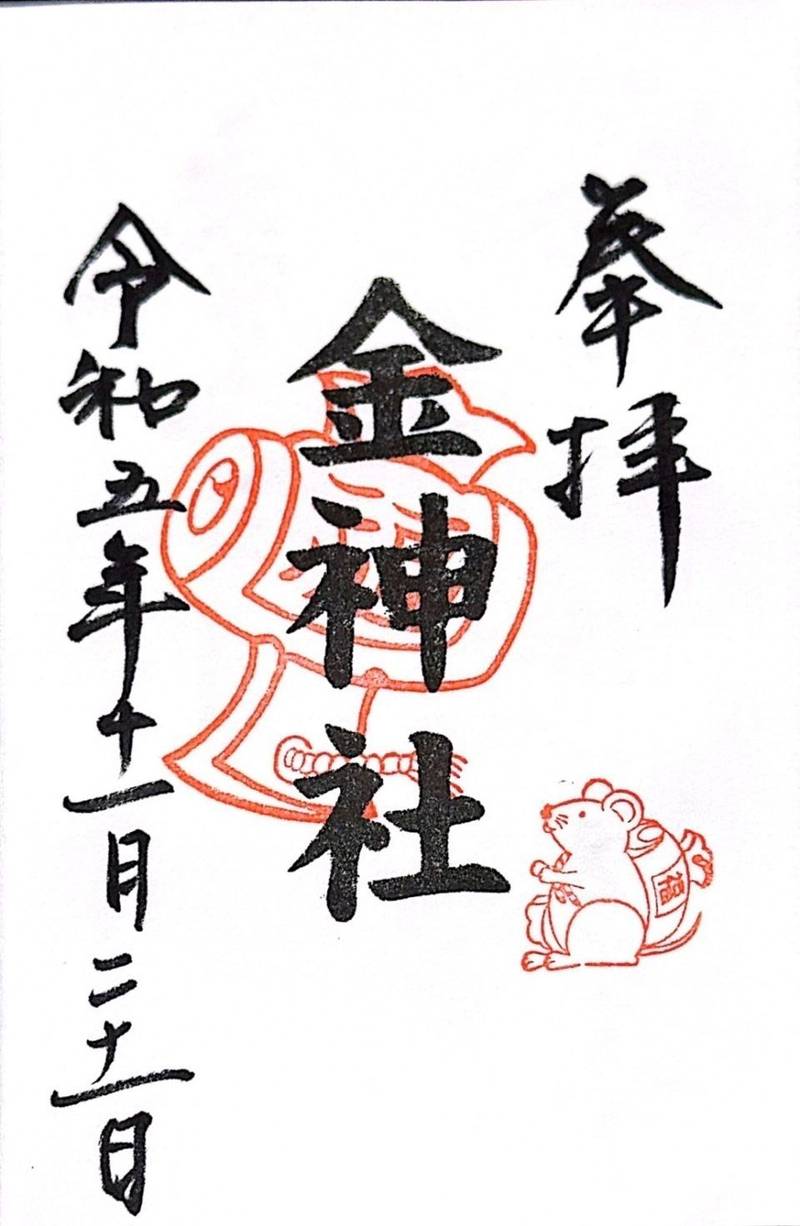 奉拝
金神社
令和五年十一月二十一日
福